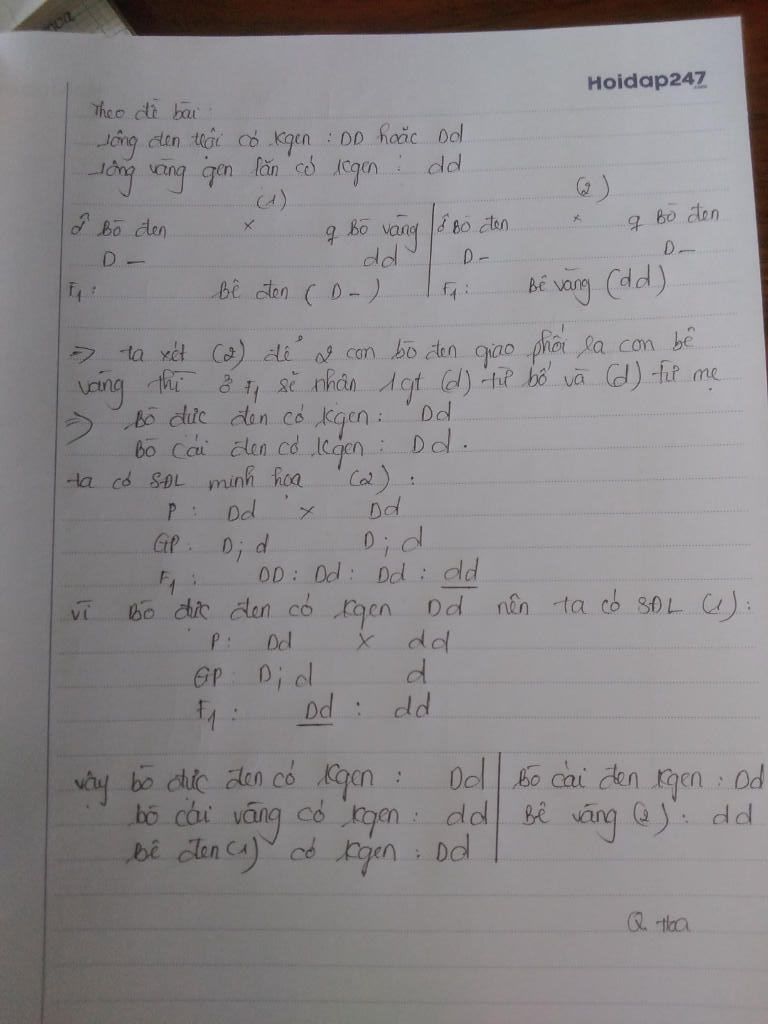 Hoidap247
.com
Theo đề bài:
Lông đen trội có kgen : DD hoặc Dd
Lông vàng gen lặn có kgen : dd
(1) (2)
♂ Bò đen × ♀ Bò vàng ♂ Bò đen × ♀ Bò đen
D – dd D – D –
F1 : Bê đen ( D – ) F1 : Bê vàng (dd)
=> ta xét (2) để 2 con bò đen giao phối ra con bê
vàng thì ở F1 sẽ nhân 1 gt (d) từ bố và (d) từ mẹ
=> Bò đực đen có kgen : Dd
Bò cái đen có kgen : Dd .
ta có SĐL minh họa (2) :
P : Dd × Dd
GP : D ; d D ; d
F1 : DD : Dd : Dd : dd
vì Bò đực đen có kgen Dd nên ta có SĐL (1) :
P : Dd × dd
GP : D ; d d
F1 : Dd : dd
vậy bò đực đen có kgen : Dd Bò cái đen kgen : Dd
bò cái vàng có kgen : dd Bê vàng (2) : dd
Bê đen (1) có kgen : Dd